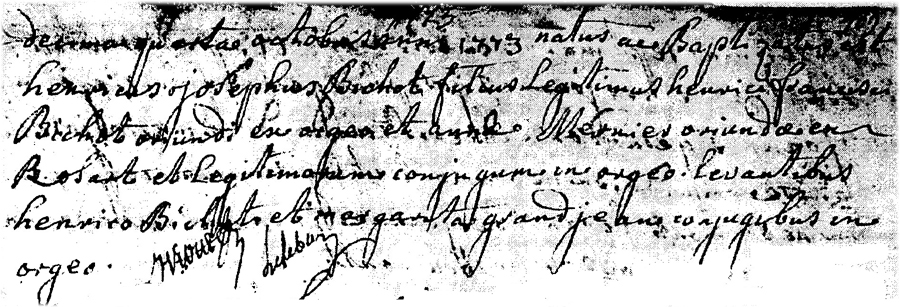 decima quarta octobris anni 1773 natus ac Baptizatus est
henricus josephus Bichot filius Legitimus henrici francisci
Bichot oriundi en orgeo et anne Mernier oriundæ en
Rosart et Legitimorum conjugum in orgeo. levantibus
henrico Bichot et margarita grandjean conjugibus in
orgeo.